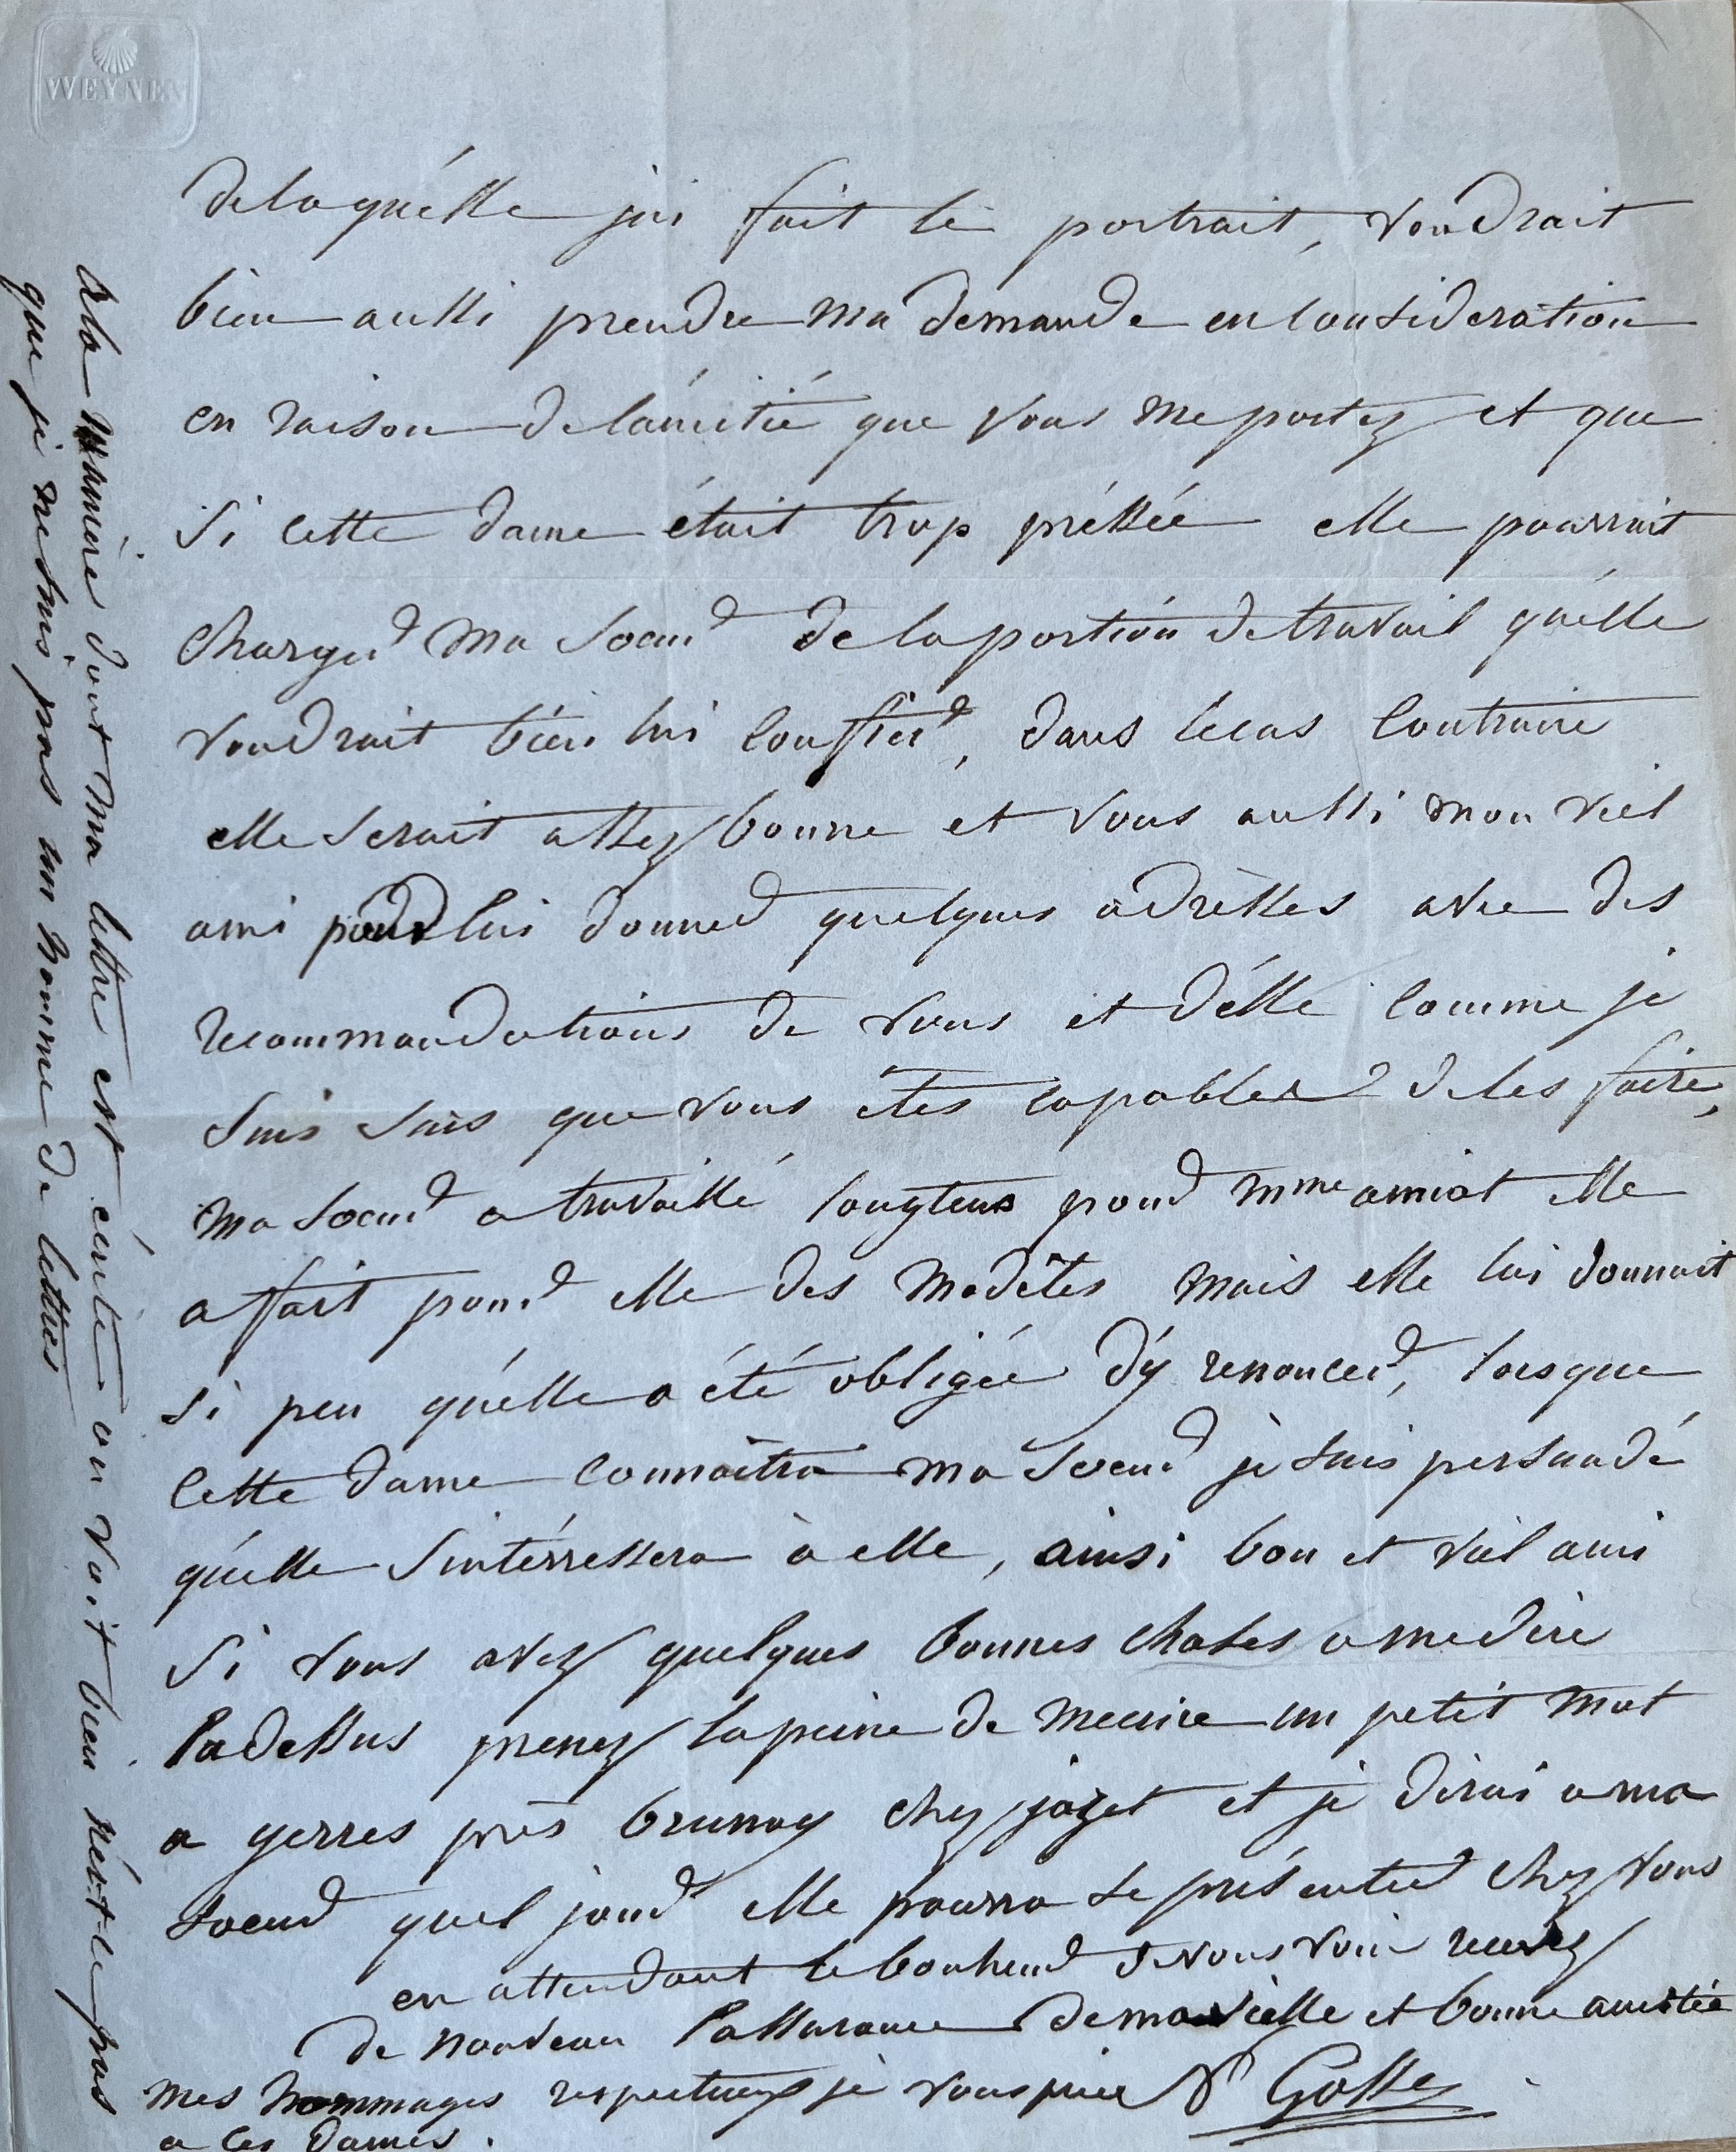 WEYNEN
de laquélle jai fait le portrait, voudrait
bien aussi prendre ma demande en consideration
en raison de lámitié que vous me portez et que
si cette dame était trop préssée elle pourrait
charger ma soeur de la portion de travail quélle
voudrait bien lui confier, dans lecas contraire
elle serait assez bonne et vous aussi mon viel
ami pour lui donner quelques adrèsses avec des
recommandations de vous et délle comme je
suis sais que vous êtes capables de les faire,
ma soeur a travaillé longtems pour mme amiot elle
a fait pour elle des modèles mais elle lui donnait
si peu quélle a été obligée dý renoncer, lorsque
cette dame connaîtra ma soeur je suis persuadé
quélle sintérressera à elle, ainsi bon et viel ami
si vous avez quelques bonnes choses a medire
ladessus prenez lapeine de mecrire un petit mot
a yerres près brunoy chez jazet et je dirai a ma
soeur quel jour elle pourra se présenter chez vous
en attendant le bonheur de vous voir recevez
de nouveau lassurance de ma vielle et bonne amitiée
mes hommages respectueux je vous prie N Gosse
a ces dames.
Ala manière dont ma lettre est écrite on voit bien nést-ce pas
que je ne suis pas un homme de lettres